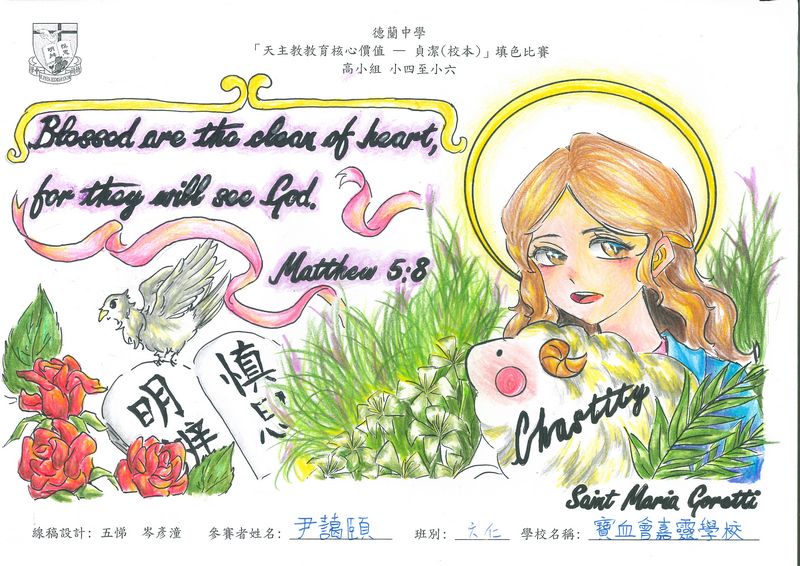 德蘭中學
「天主教教育核心價值 — 貞潔(校本)」填色比賽
高小組 小四至小六
Blessed are the clean of heart,
for they will see God.
Matthew 5:8
慎思
明辨
Chastity
Saint Maria Goretti
線稿設計: 五悌 岑彥潼 參賽者姓名: 尹藹頤 班別: 六仁 學校名稱: 寶血會嘉靈學校